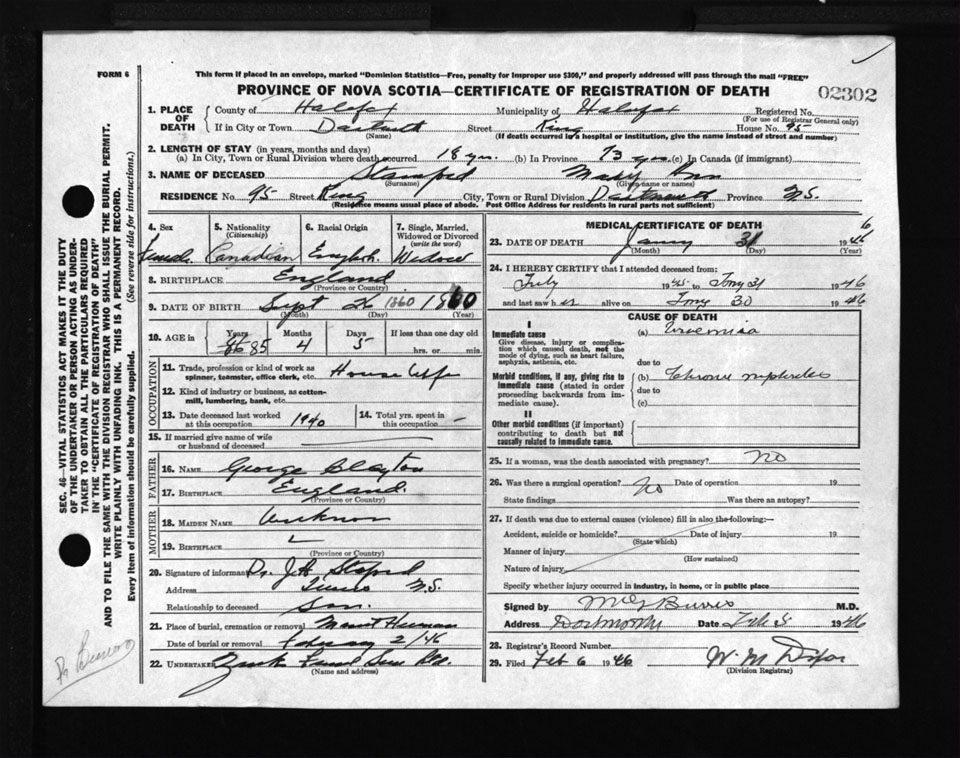 FORM 6
This form if placed in an envelope, marked "Dominion Statistics—Free, penalty for improper use $300," and properly addressed will pass through the mail "FREE"
PROVINCE OF NOVA SCOTIA—CERTIFICATE OF REGISTRATION OF DEATH
02302
1. PLACE OF DEATH
County of Halifax Municipality of Halifax Registered No.
(For use of Registrar General only)
If in City or Town Dartmouth Street King House No. 95
(Name) (If death occurred in a hospital or institution, give the name instead of street and number)
2. LENGTH OF STAY (in years, months and days)
(a) In City, Town or Rural Division where death occurred 18 yrs. (b) In Province 73 yrs. (c) In Canada (if immigrant)
3. NAME OF DECEASED Stanford Mary Ann
(Surname) (Given name or names)
RESIDENCE No. 95 Street King City, Town or Rural Division Dartmouth Province N.S.
(Residence means usual place of abode. Post Office Address for residents in rural parts not sufficient)
4. Sex 5. Nationality (Citizenship) 6. Racial Origin 7. Single, Married, Widowed or Divorced (write the word)
Female Canadian English Widow
8. BIRTHPLACE England
(Province or Country)
9. DATE OF BIRTH Sept 26 1860 1860
(Month) (Day) (Year)
10. AGE in Years Months Days If less than one day old
86 85 4 5 hrs. or min.
OCCUPATION
11. Trade, profession or kind of work as spinner, teamster, office clerk, etc. House Wife
12. Kind of industry or business, as cotton-mill, lumbering, bank, etc.
13. Date deceased last worked at this occupation 1940
14. Total yrs. spent in this occupation —
15. If married give name of wife or husband of deceased
FATHER
16. NAME George Clayton
17. BIRTHPLACE England.
(Province or Country)
MOTHER
18. MAIDEN NAME Unknown
19. BIRTHPLACE
(Province or Country)
20. Signature of informant Dr. J.A.
Address Truro N.S.
Relationship to deceased Son.
21. Place of burial, cremation or removal Mount Herman
Date of burial or removal February 2/46
22. UNDERTAKER
(Name and address)
MEDICAL CERTIFICATE OF DEATH
23. DATE OF DEATH 31 1946
(Month) (Day)
24. I HEREBY CERTIFY that I attended deceased from:
July 1945 to 31 1946
and last saw her alive on 30 1946
CAUSE OF DEATH
I
Immediate cause
Give disease, injury or complication which caused death, not the mode of dying, such as heart failure, asphyxia, asthenia, etc.
(a) Uraemia
due to
Morbid conditions, if any, giving rise to immediate cause (stated in order proceeding backwards from immediate cause).
(b) Chronic nephritis
due to
(c)
II
Other morbid conditions (if important) contributing to death but not causally related to immediate cause.
25. If a woman, was the death associated with pregnancy? No
26. Was there a surgical operation? No Date of operation 19
State findings Was there an autopsy?
27. If death was due to external causes (violence) fill in also the following:—
Accident, suicide or homicide? Date of injury 19
(State which)
Manner of injury
(How sustained)
Nature of injury
Specify whether injury occurred in industry, in home, or in public place
Signed by Burris M.D.
Address Dartmouth Date Feb 5 1946
28. Registrar's Record Number
29. Filed Feb 6 1946
(Division Registrar)
SEC. 46—VITAL STATISTICS ACT MAKES IT THE DUTY OF THE UNDERTAKER OR PERSON ACTING AS UNDERTAKER TO OBTAIN ALL THE PARTICULARS REQUIRED IN THE "CERTIFICATE OF REGISTRATION OF DEATH" AND TO FILE THE SAME WITH THE DIVISION REGISTRAR WHO SHALL ISSUE THE BURIAL PERMIT.
WRITE PLAINLY WITH UNFADING INK. THIS IS A PERMANENT RECORD.
Every item of information should be carefully supplied. (See reverse side for instructions.)